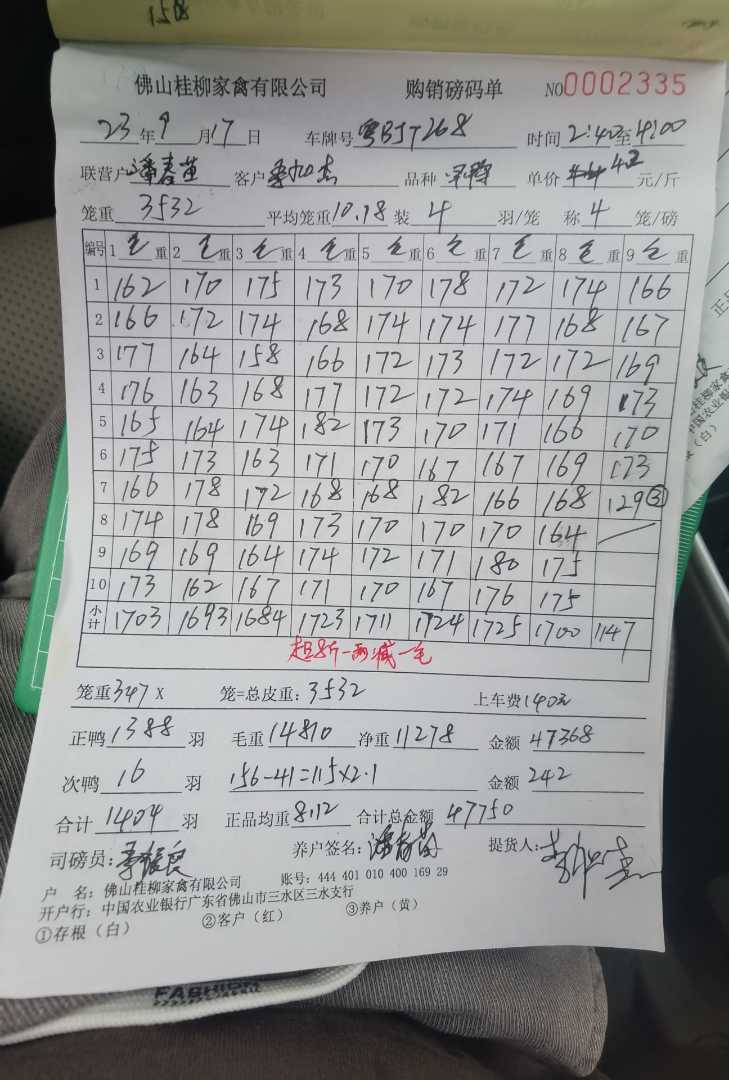 158
佛山桂柳家禽有限公司 购销磅码单 NO0002335
23年9月17日 车牌号粤BJT268 时间2:40至4:00
联营户潘春苗 客户 品种 单价 42 元/斤
笼重3532 平均笼重10.18 装4羽/笼 称4笼/磅
编号 1 毛重 2 毛重 3 毛重 4 毛重 5 毛重 6 毛重 7 毛重 8 毛重 9 毛重
1 162 170 175 173 170 178 172 174 166
2 166 172 174 168 174 174 177 168 167
3 177 164 158 166 172 173 172 172 169
4 176 163 168 177 172 172 174 169 173
5 165 164 174 182 173 170 171 166 170
6 175 173 163 171 170 167 167 169 173
7 166 178 172 168 168 182 166 168 129 31
8 174 178 169 173 170 170 170 164
9 169 169 164 174 172 171 180 175
10 173 162 167 171 170 167 176 175
小计 1703 1693 1684 1723 1711 1724 1725 1700 1147
超8斤一两减一毛
笼重347X 笼=总皮重:3532 上车费140元
正鸭1388羽 毛重14810 净重11278 金额47368
次鸭16羽 156-41=115×2.1 金额242
合计1404羽 正品均重8.12 合计总金额47750
司磅员: 养户签名:潘春苗 提货人:
户 名:佛山桂柳家禽有限公司 账号:444 401 010 400 169 29
开户行:中国农业银行广东省佛山市三水区三水支行
①存根(白) ②客户(红) ③养户(黄)
FASHION